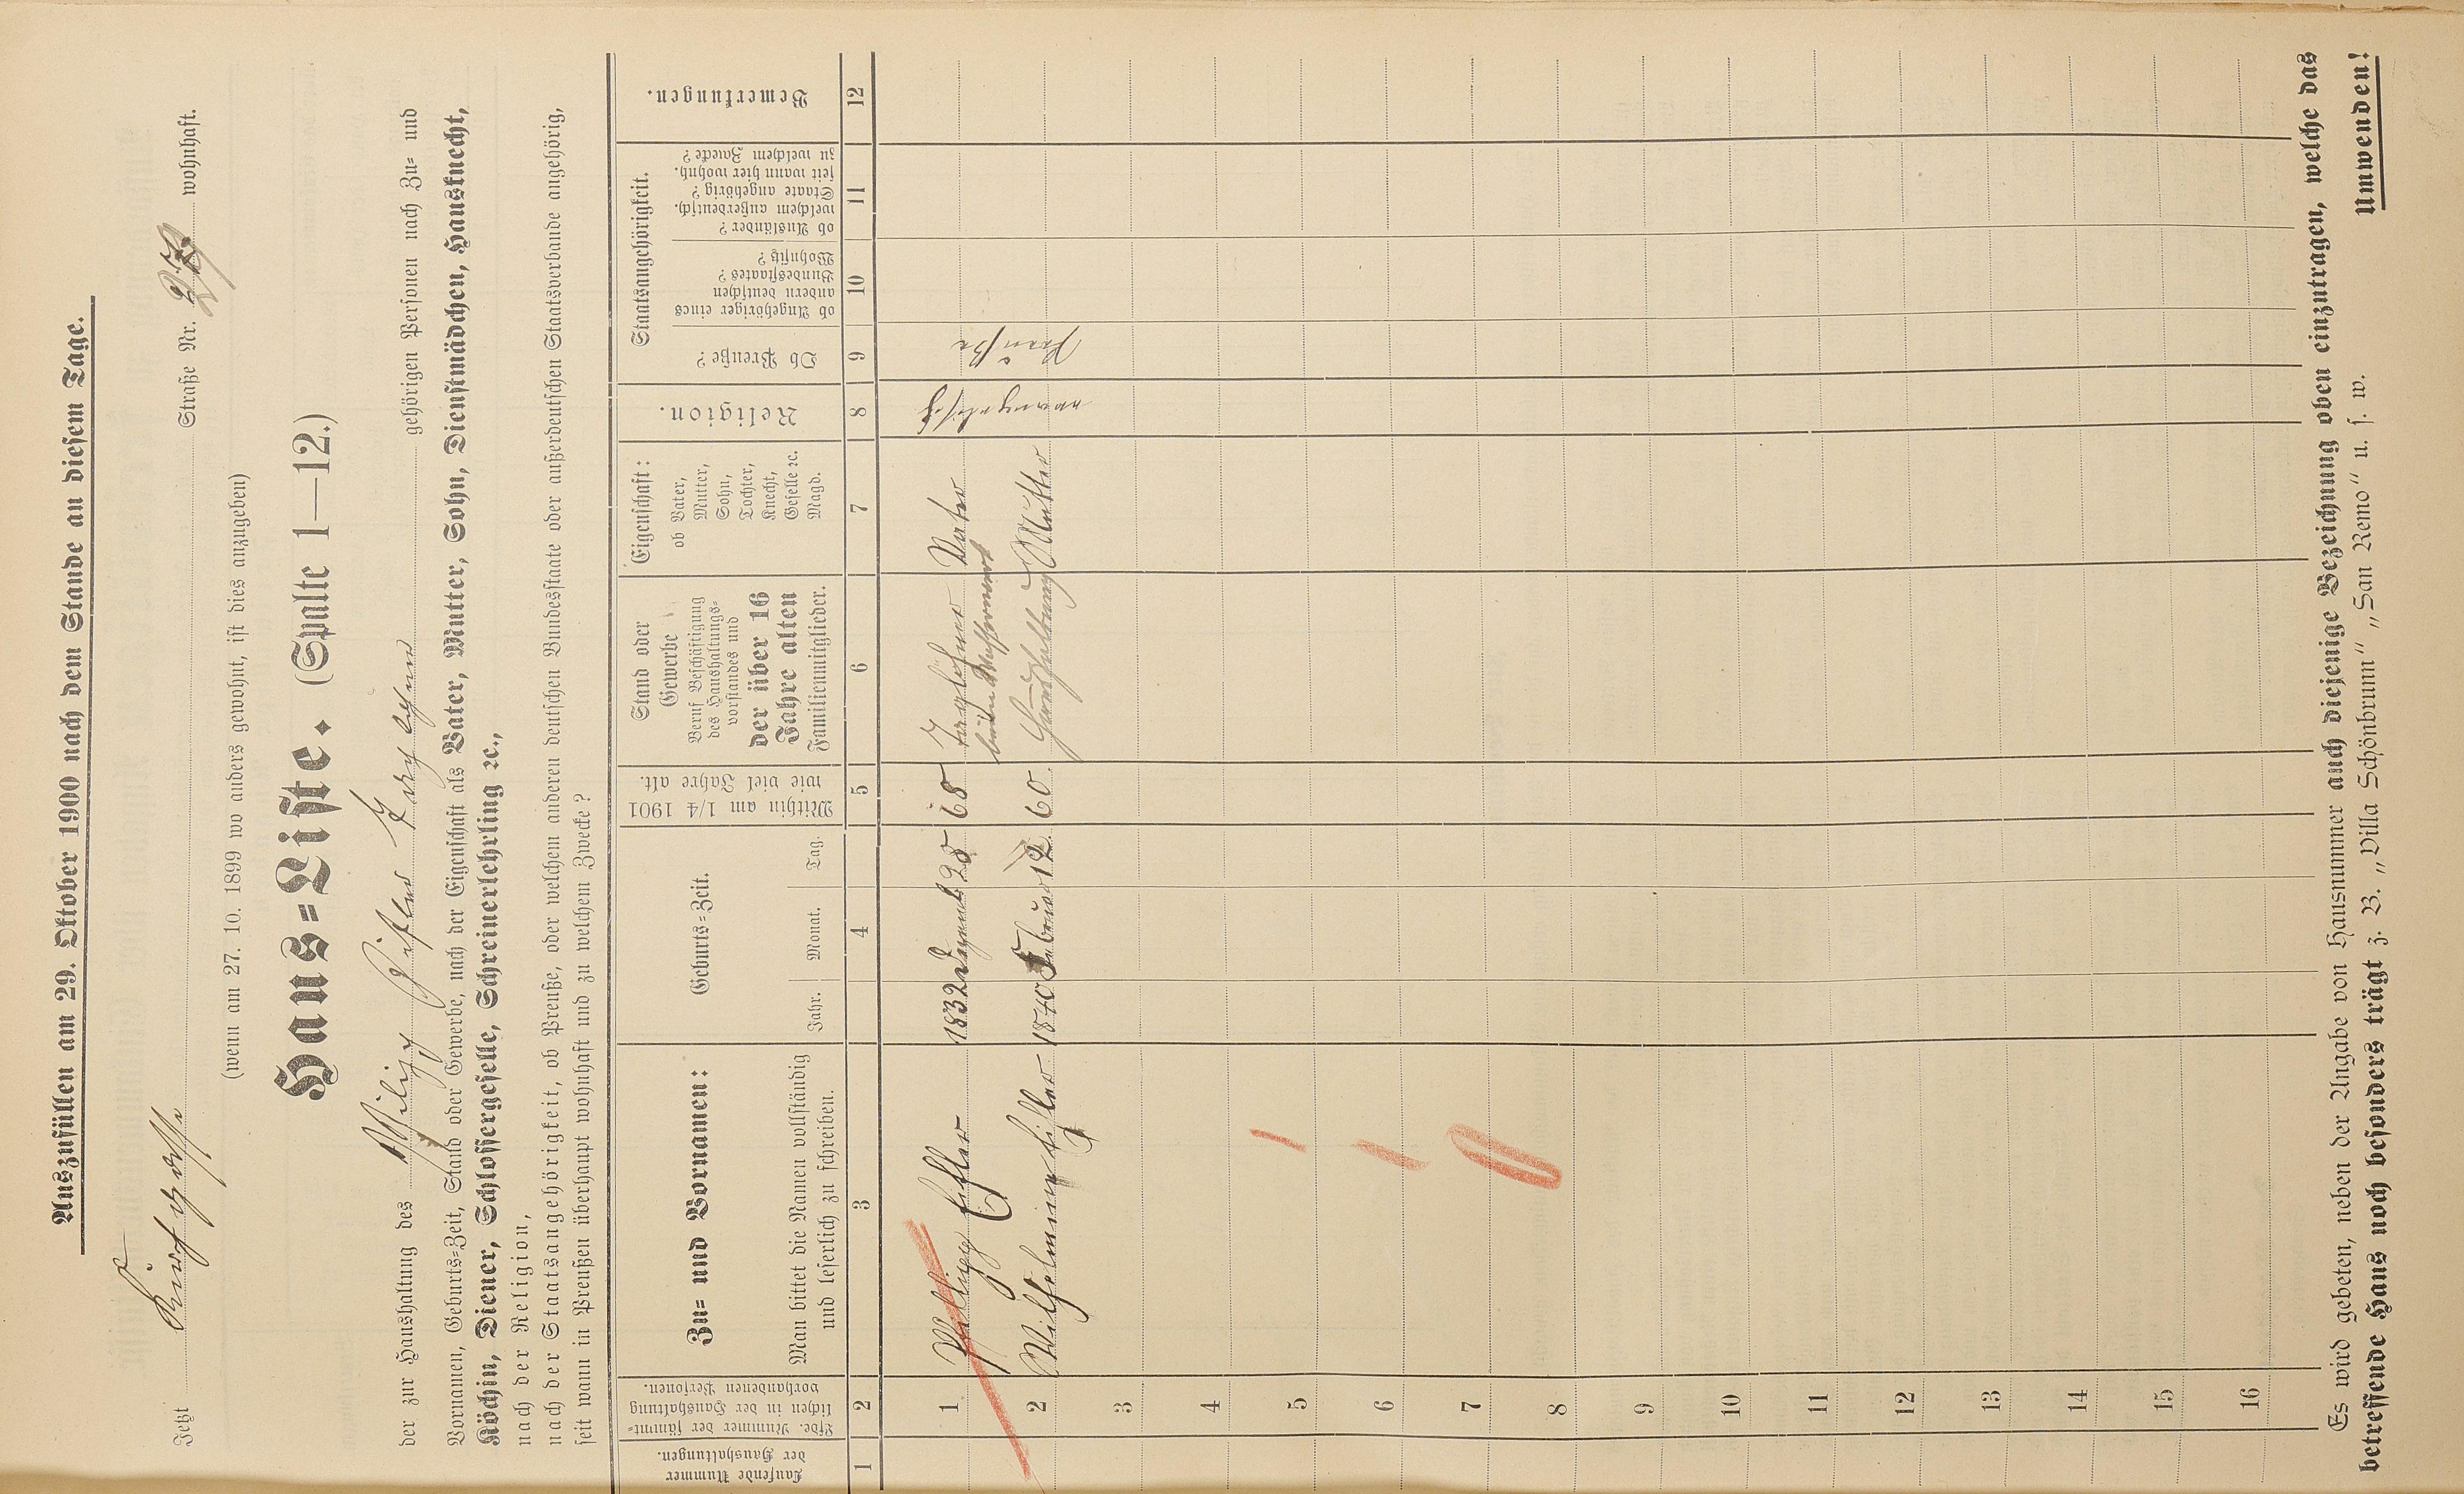 Auszufüllen am 29. Oktober 1900 nach dem Stande an diesem Tage.
Jetzt Straße Nr. 27 wohnhaft.
(wenn am 27. 10. 1899 wo anders gewohnt, ist dies anzugeben)
Haus=Liste. (Spalte 1—12.)
der zur Haushaltung des Philipp Eifler Taglöhner gehörigen Personen nach Zu= und
Vornamen, Geburts=Zeit, Stand oder Gewerbe, nach der Eigenschaft als Vater, Mutter, Sohn, Dienstmädchen, Hausknecht,
Köchin, Diener, Schlossergeselle, Schreinerlehrling ꝛc.,
nach der Religion,
nach der Staatsangehörigkeit, ob Preuße, oder welchem anderen deutschen Bundesstaate oder außerdeutschen Staatsverbande angehörig,
seit wann in Preußen überhaupt wohnhaft und zu welchem Zwecke?
Laufende Nummer
der Haushaltungen.
Lfde. Nummer der sämmt=
lichen in der Haushaltung
vorhandenen Personen.
Zu= und Vornamen:
Man bittet die Namen vollständig
und leserlich zu schreiben.
Geburts=Zeit.
Jahr. Monat. Tag.
Mithin am 1/4 1901
wie viel Jahre alt.
Stand oder
Gewerbe
Beruf Beschäftigung
des Haushaltungs=
vorstandes und
der über 16
Jahre alten
Familienmitglieder.
Eigenschaft:
ob Vater,
Mutter,
Sohn,
Tochter,
Knecht,
Geselle ꝛc.
Magd.
Religion.
Staatsangehörigkeit.
Ob Preuße?
ob Angehöriger eines
andern deutschen
Bundesstaates?
Wohnsitz?
ob Ausländer?
welchem außerdeutsch.
Staate angehörig?
seit wann hier wohnh.
zu welchem Zwecke?
Bemerkungen.
1 2 3 4 5 6 7 8 9 10 11 12
1 Philipp Eifler 1832 Dezemb. 28 68 Taglöhner Vater evangelisch Preuße
2 Wilhelmine Eifler 1840 Februar 12 60 Haushaltung Mutter
3
4
5
6
7
8
9
10
11
12
13
14
15
16
Es wird gebeten, neben der Angabe von Hausnummer auch diejenige Bezeichnung oben einzutragen, welche das
betreffende Haus noch besonders trägt z. B. „Villa Schönbrunn“ „San Remo“ u. s. w.
Umwenden!